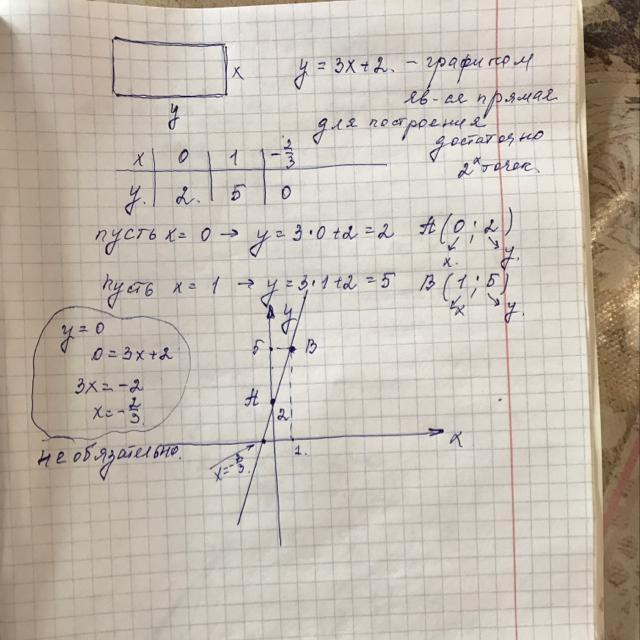 x
y
y = 3x+2. – графиком
яв-ся прямая.
для построения
достаточно
2х точек.
x 0 1 -2/3
y. 2. 5 0
пусть x = 0 → y = 3·0+2 = 2 A(0; 2)
x. y.
пусть x = 1 → y = 3·1+2 = 5 B(1; 5)
x y.
y = 0
0 = 3x+2
3x = -2
x = -2/3.
не обязательно.
y
5 B
A
2
x
1.
x = -2/3.